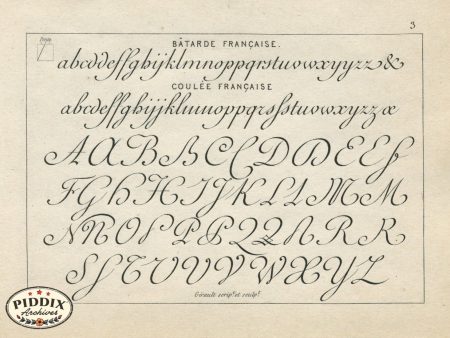 3
BÂTARDE FRANÇAISE.
abcddefſfghijklmnoppqrstuvwxyyzz&
COULÉE FRANÇAISE
abcdefſfghijjkllmnoppqrsſstuvwxyzzæ
AABBCCDDEEF
FGHHIJKLLMM
NNOPPQQRRR
SſTUVVWXYZ
Girault scripsᵗ et sculpsᵗ
PIDDIX
Archives